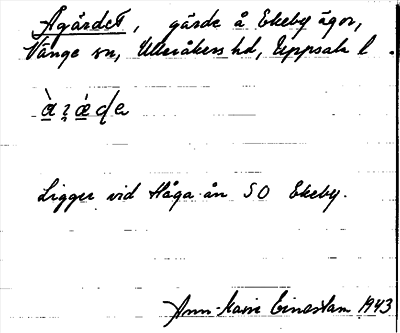 Ågärdet, gärde å Ekeby ägor,
Vänge sn, Ulleråkers hd, Uppsala l.
Ligger vid Hågaån SO Ekeby.
Ann-Marie Einarstam 1943